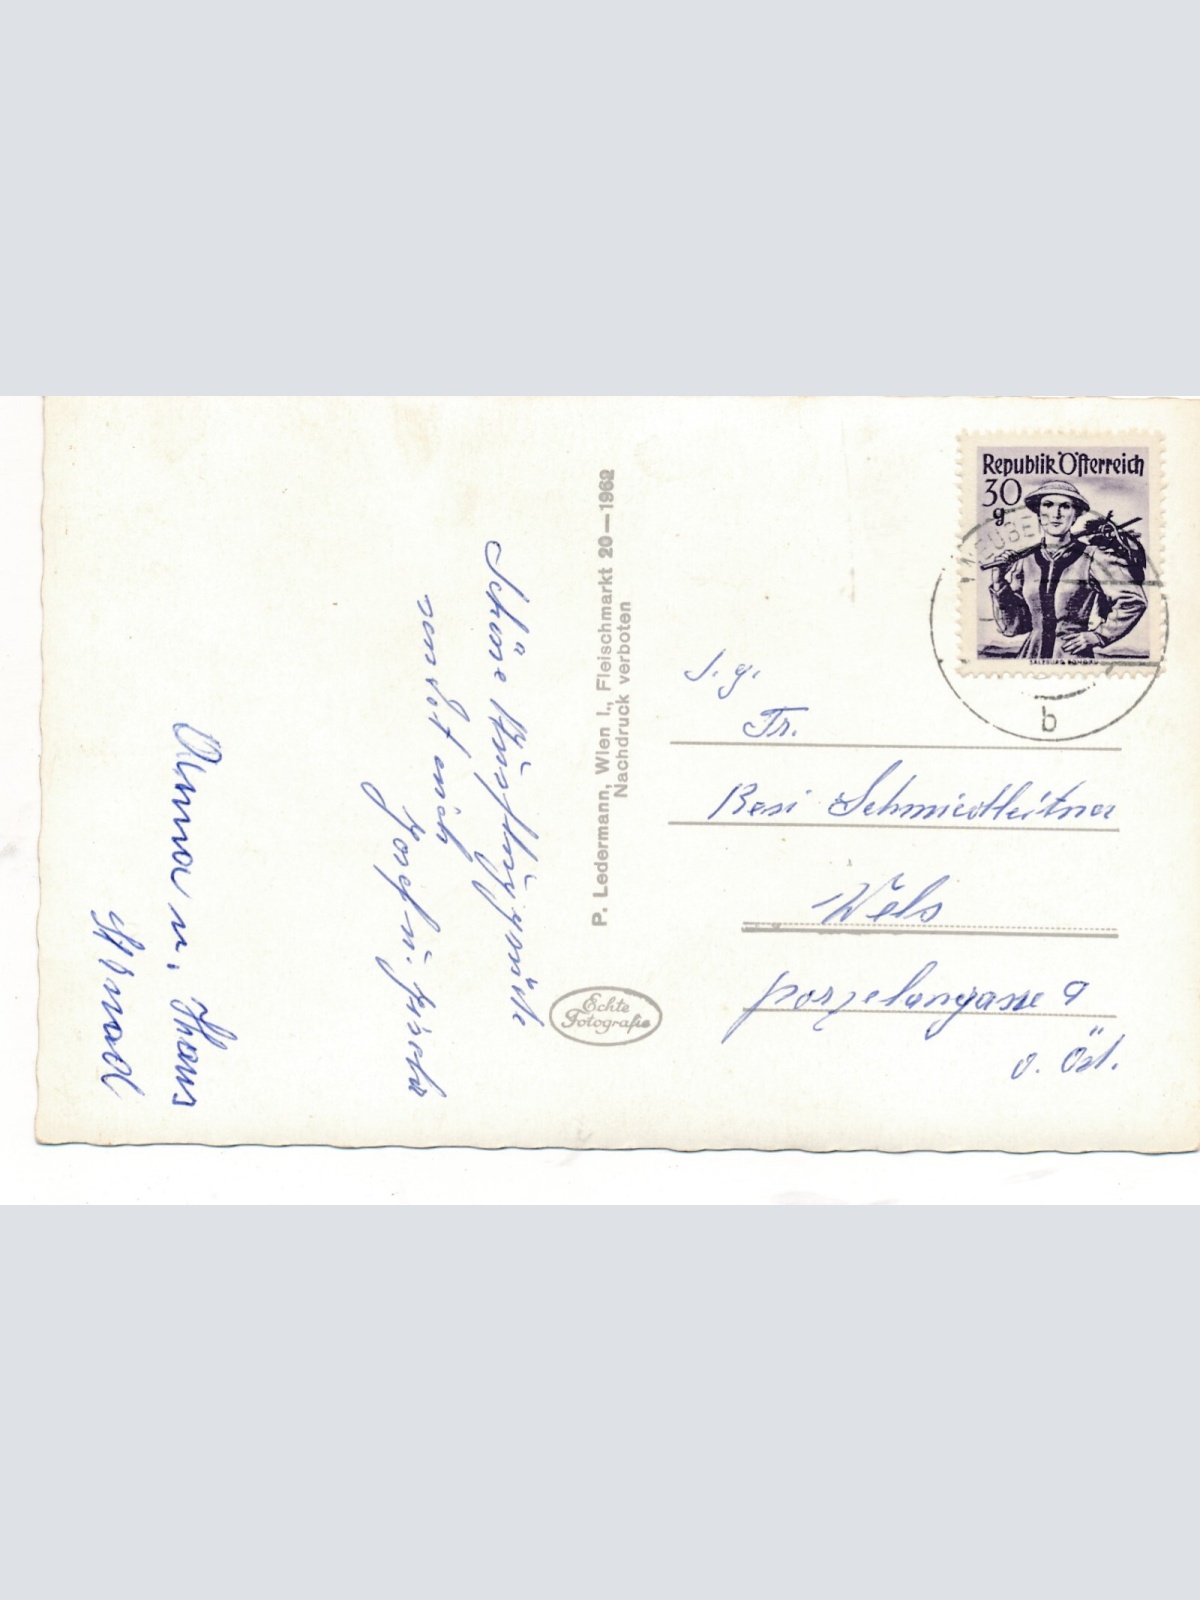 Schöne Urlaubsgrüße
sendet euch
Josef u.
Anna u. Hans
P. Ledermann, Wien I., Fleischmarkt 20—1962
Nachdruck verboten
Echte
Fotografie
Republik Österreich
30
g
SALZBURG PONGAU
NEUBER
b
S. g.
Fr.
Resi Schmiedleitner
Wels
Porzelangasse 9
O. Öst.